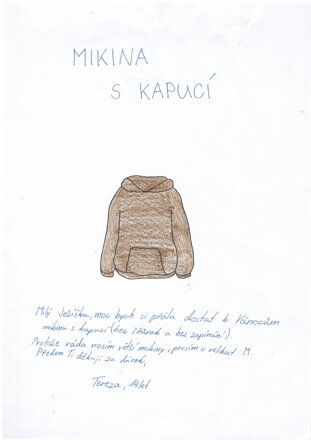 MIKINA
S KAPUCÍ
Milý Ježíšku, moc bych si přála dostat k Vánocům
mikinu s kapucí (bez šňůrek a bez zapínání).
Protože ráda nosím větší mikiny, prosím o velikost M.
Předem Ti děkuji za dárek,
Tereza, 14 let